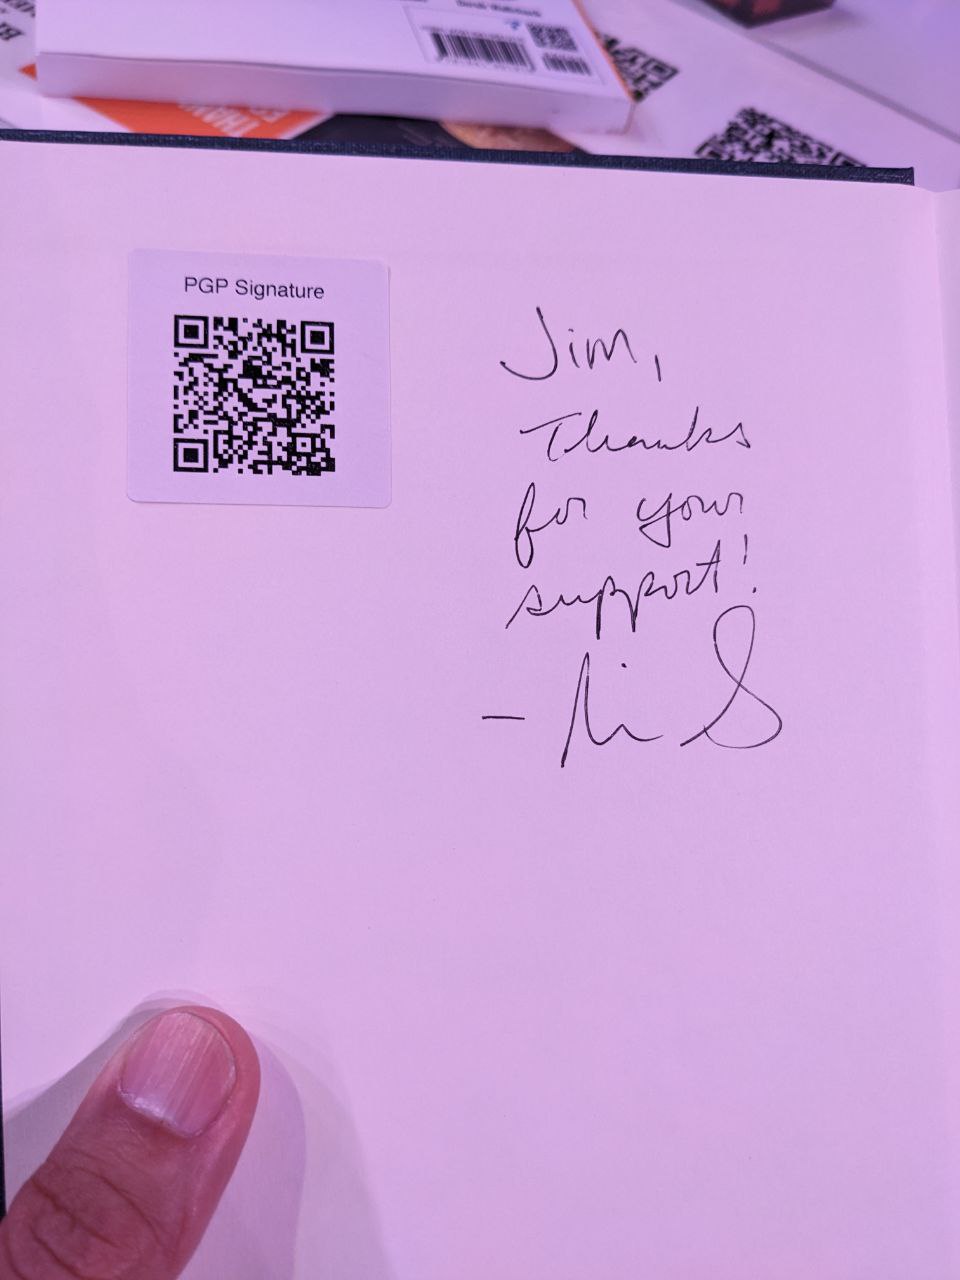 PGP Signature
Jim,
Thanks
for your
support!